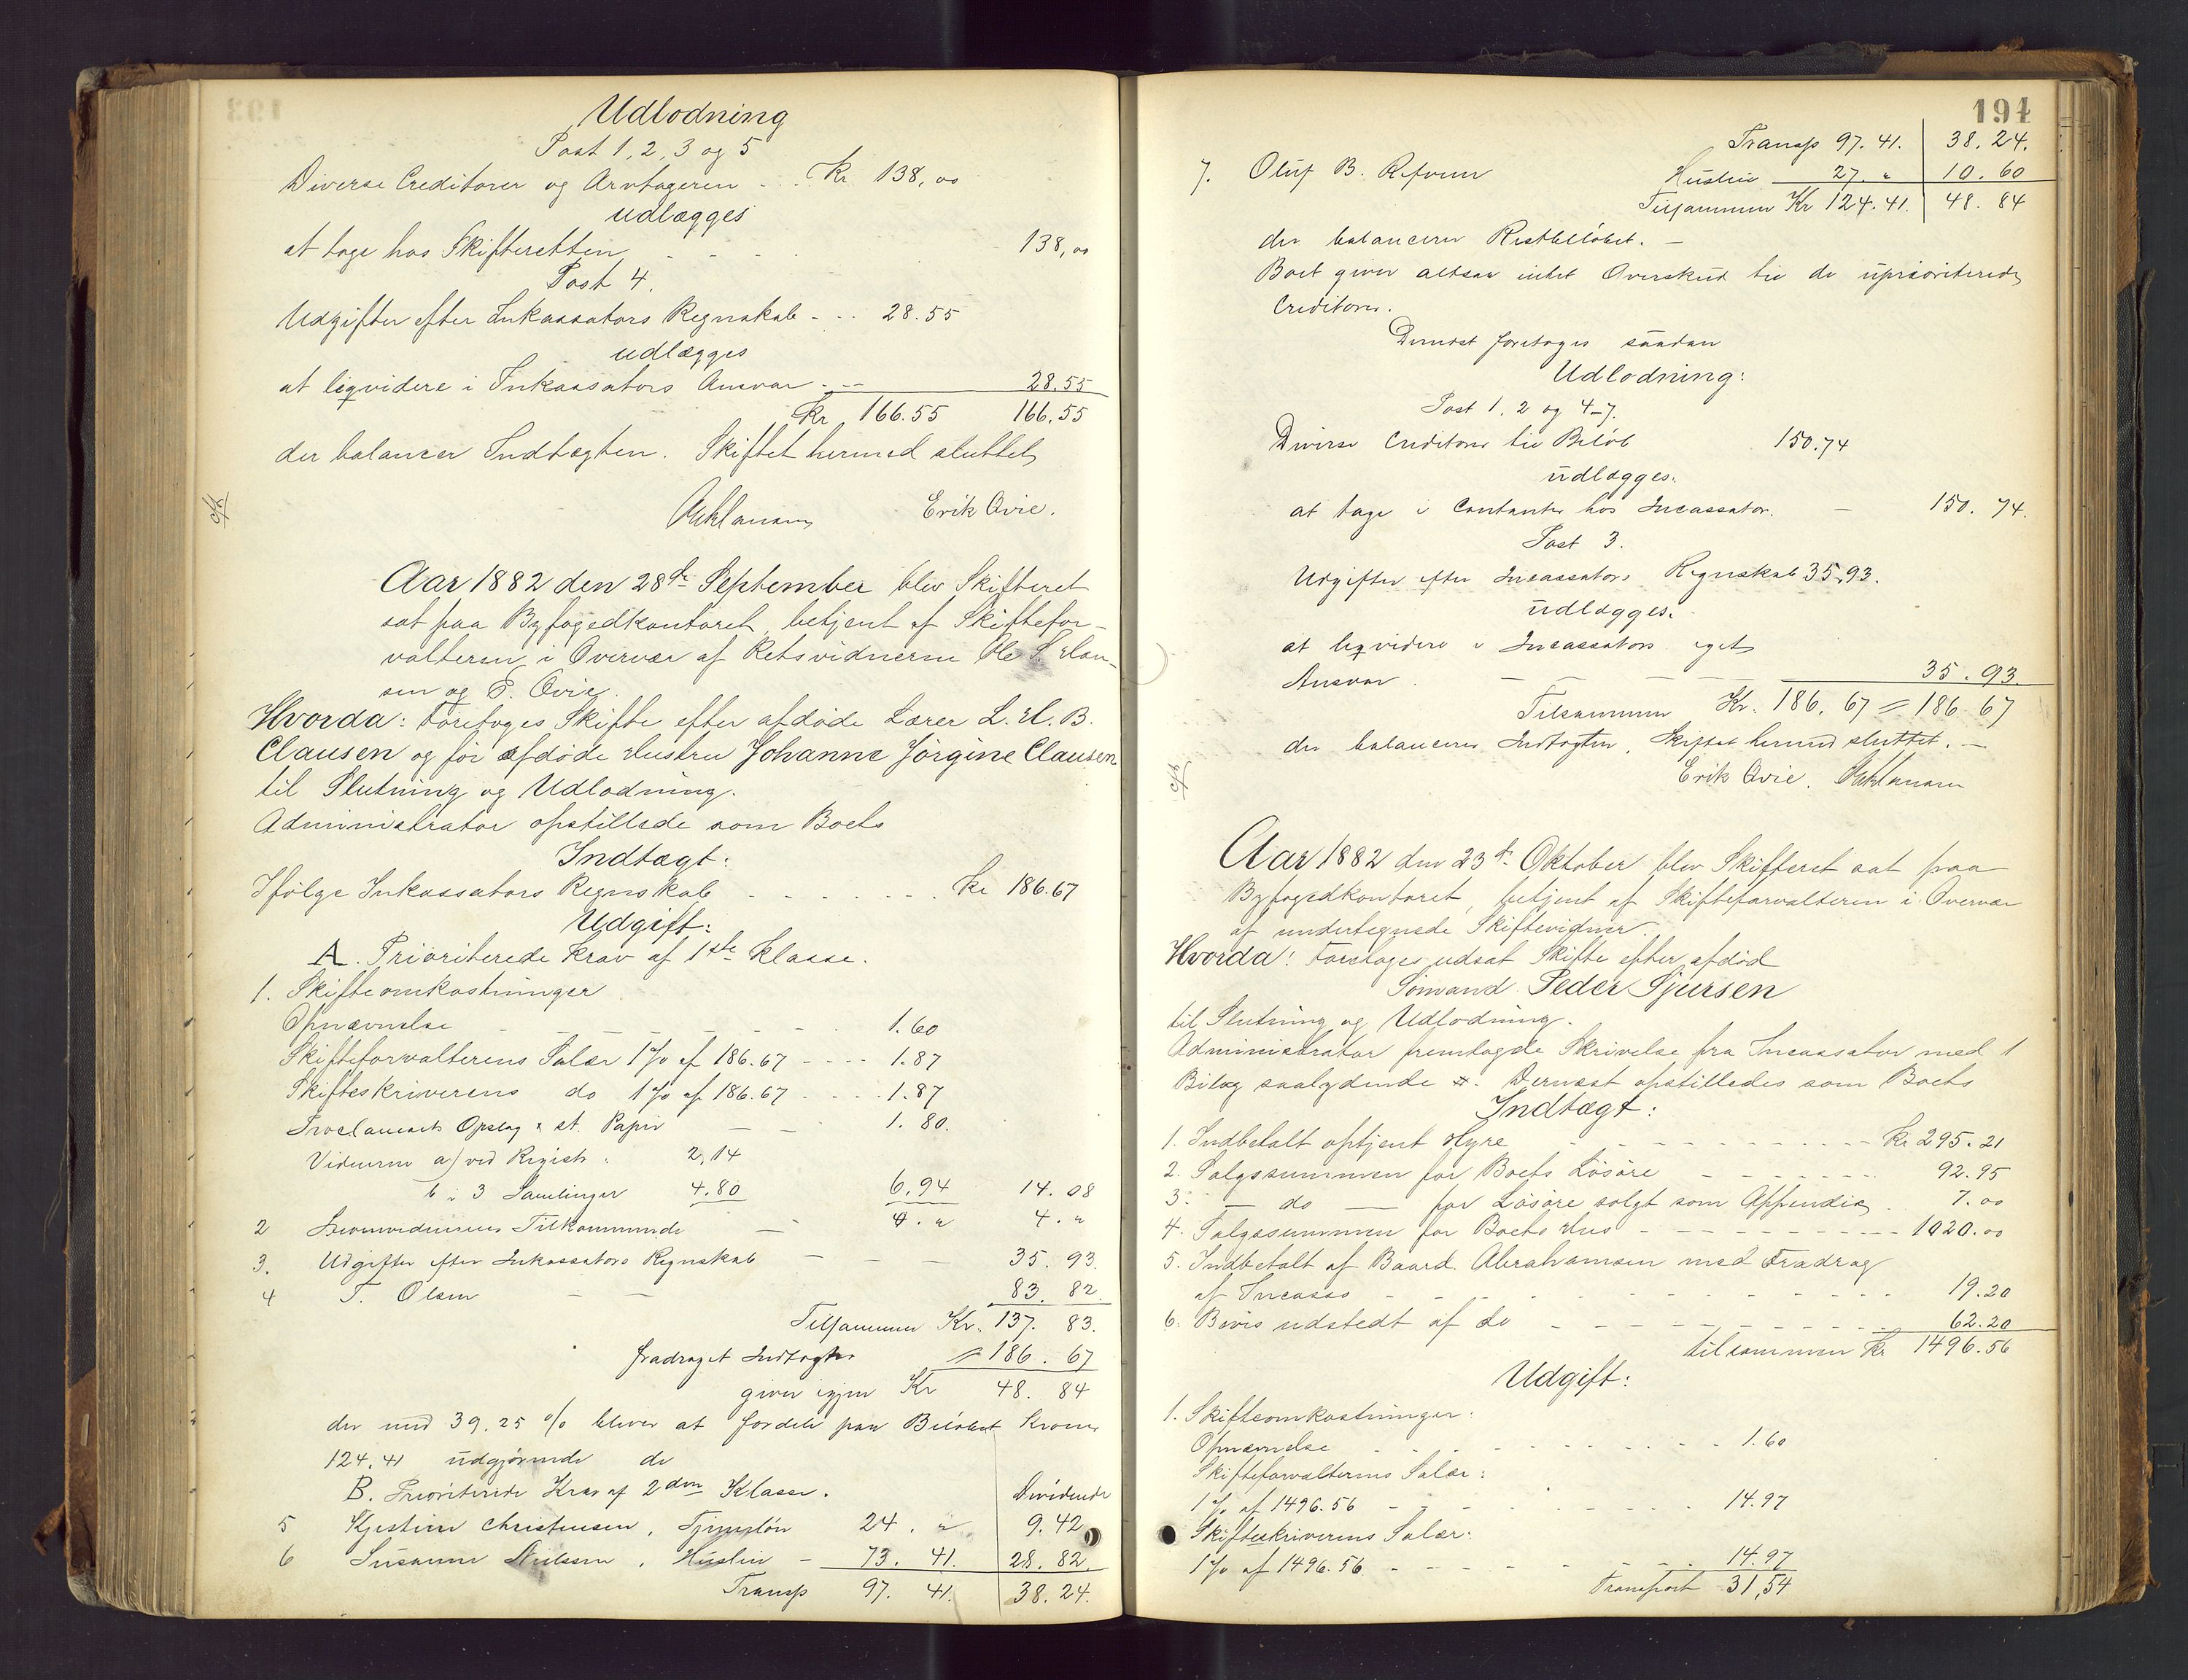 Udlodning
Post 1, 2, 3 og 5
Diverse Creditorer og Arvtageren - . Kr 138,00
udlægges
at tage hos Skifteretten - - - - 138,00
Post 4.
Udgifter efter Inkassators Regnskab - .. 28.55
udlægges
at liqvidere i Inkassators Ansvar - -- 28.55
Kr 166.55 166.55
der balancer Indtægten. Skiftet hermed sluttet
Erik Qvie.
Aar 1882 den 28de September blev Skifteret
sat paa Byfogedkontoret, betjent af Skiftefor-
valteren, i Overvær af Retsvidnerne Ole S. Han-
sen og E. Qvie.
Hvorda: Foretoges Skifte efter afdøde Lærer L. H. B.
Clausen og før afdøde Hustru Johanne Jørgine Clausen
til Slutning og Udlodning.
Administrator opstillede som Boets
Indtægt:
Ifølge Inkassators Regnskab - - - - - - Kr 186.67
Udgift:
A. Prioriterede Krav af 1ste Klasse.
1. Skifteomkostninger
Opnævnelse - - - - - - - 1.60
Skifteforvalterens Salær 1% af 186.67 - - - - 1.87
Skifteskriverens do 1% af 186.67 - - - - 1.87
Proclamaets Opslag & st. Papir - - 1. 80.
Vidnerne a) ved Registr: 2,14
b i 3 Samlinger 4.80 6.94 14. 08
2 Tilkommende - 4. " 4. "
3. Udgifter efter Inkassators Regnskab - - - 35. 93.
4 T. Olsen - - 83. 82.
Tilsammen Kr. 137. 83.
fradraget Indtægten 186. 67
giver igjen Kr 48. 84
der med 39.25 % bliver at fordele paa Beløbet Kroner
124.41 udgjørende de
B. Prioriterede Krav af 2den Klasse. Dividende
5 Kjestine Christensen, Tjenerløn 24. " 9.42
6 Susanne Nielsen, Husleie - 73. 41. 28. 82.
Transp 97. 41. 38. 24.
194
Transp 97. 41. 38. 24.
7. Oluf B. Refvem Husleie 27. " 10. 60
Tilsammen Kr 124.41. 48. 84
der balancerer Restbeløbet. -
Boet giver altsaa intet Overskud til de uprioriterede
Creditorer.
Dernæst foretoges saadan
Udlodning:
Post 1, 2 og 4-7.
Diverse Creditorer til Beløb 150.74
udlægges:
at tage i Contanter hos Incassator. - 150. 74.
Post 3.
Udgifter efter Incassators Regnskab 35.93.
udlægges:
at liqvidere i Incassators eget
Ansvar. - - - - 35. 93.
Tilsammen Kr. 186. 67 = 186. 67
der balancerer Indtægten. Skiftet hermed sluttet. -
Erik Qvie.
Aar 1882 den 23de Oktober blev Skifteret sat paa
Byfogedkontoret, betjent af Skifteforvalteren i Overvær
af undertegnede Skiftevidner.
Hvorda: Foretoges udsat Skifte efter afdød
Sømand Peder Sjursen
til Slutning og Udlodning.
Administrator fremlagde Skrivelse fra Incassator med 1
Bilag saalydende #. Dernæst opstilledes som Boets
Indtægt:
1. Indbetalt optjent Hyre - - - - - - - - Kr 295.21
2. Salgssummen for Boets Løsøre - - - - - 92.95
3. - do - for Løsøre solgt som Appendix . 7.00
4. Salgssummen for Boets Hus - - - - - - - 1020.00
5. Indbetalt af Baard Abrahamsen med Fradrag
af Incasso - - - - - - - - - - 19.20
6. Bevis udstedt af do - - - - - - - 62.20
tilsammen Kr 1496.56
Udgift:
1. Skifteomkostninger:
Opnævnelse - - - - - - - - 1.60
Skifteforvalterens Salær:
1% af 1496.56 - - - - - - 14.97
Skifteskriverens Salær:
1% af 1496.56 - - - - - - 14.97
Transport 31,54